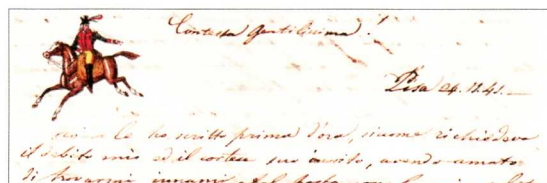 Contessa gentilissima!
Pisa 24. 12. 41.
le ho scritto prima d'ora, siccome richiedeva
il debito mio ed il cortese suo invito, avendo amato
di trovarmi innanzi